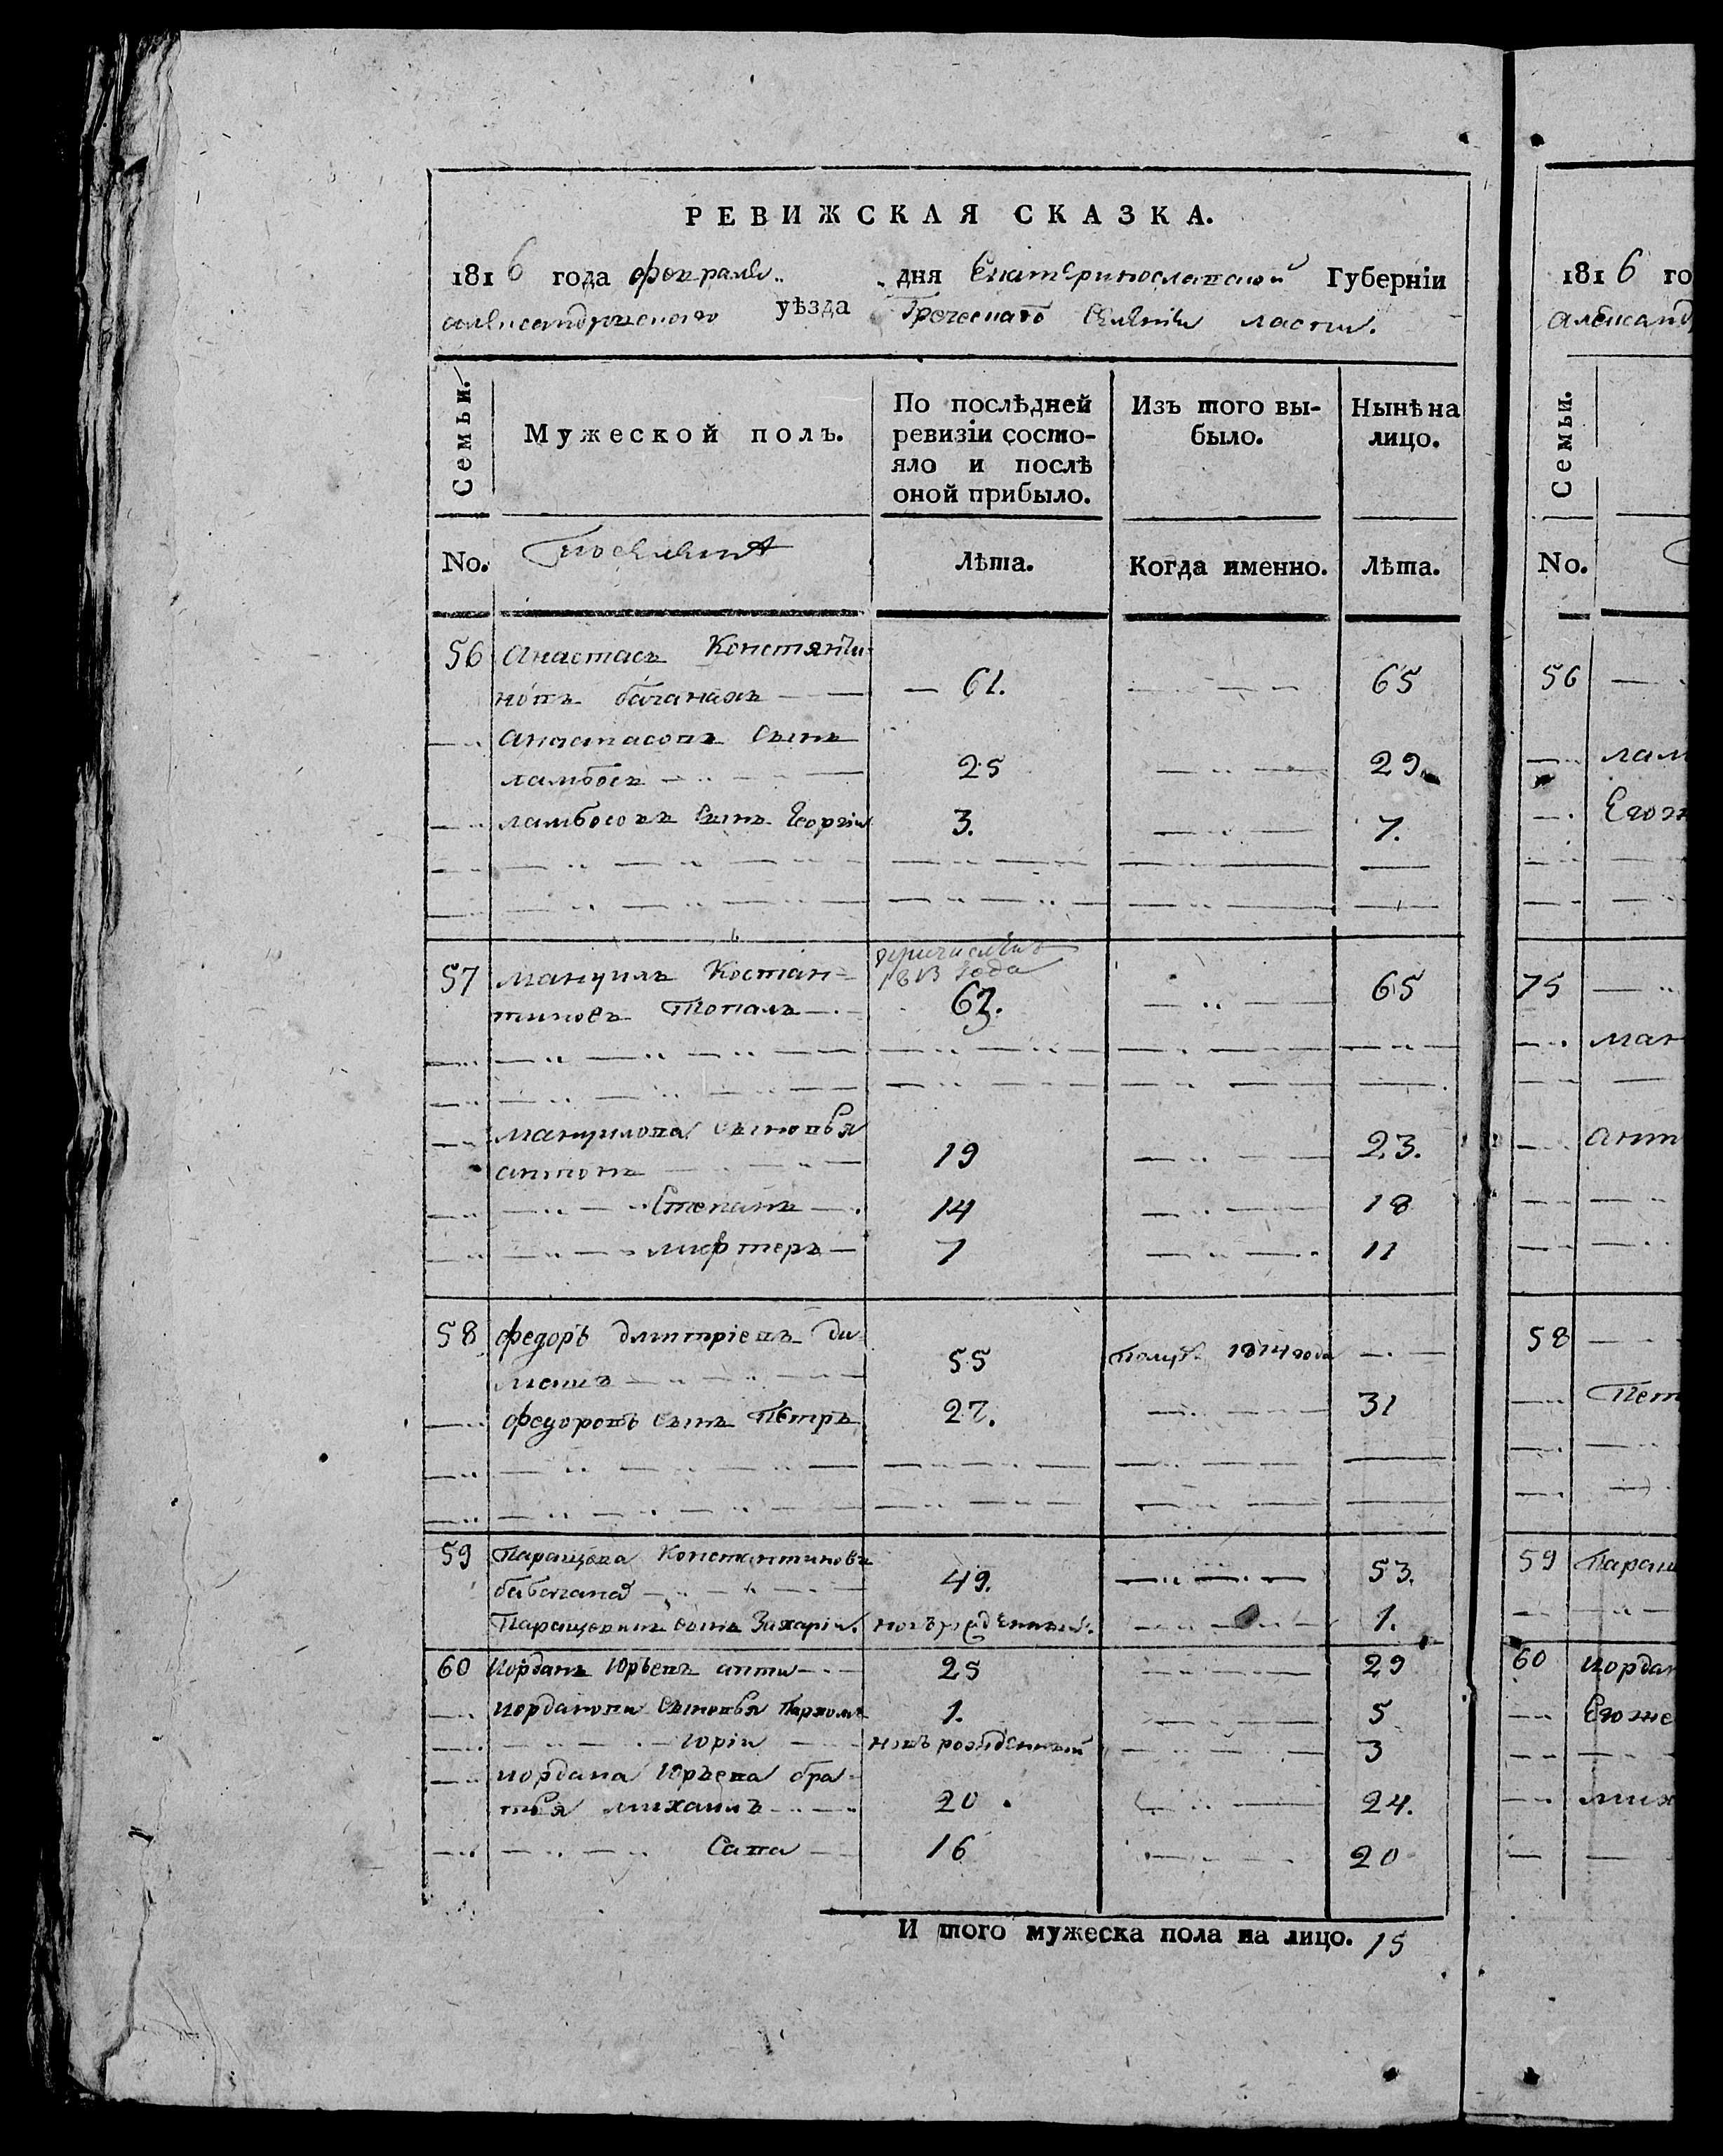 РЕВИЖСКАЯ СКАЗКА.
1816 года февраля .. дня Екатеринославской Губерніи
александровскаго уѣзда Греческаго Селенія ласпи.
Семьи.
Мужеской полъ.
По послѣдней ревизіи состо-
яло и послѣ
оной прибыло.
Изъ того вы-
было.
Нынѣ на
лицо.
No.
Поселяня
Лѣта.
Когда именно.
Лѣта.
56 Анастасъ Константи-
новъ — 61. 65
Анастасовъ Сынъ
ламбосъ 25 29
ламбосовъ Сынъ Георгій 3. 7.
57 мануилъ Костан= причисленъ 1813 года
тиновъ Топалъ 62. 65
мануилова Сыновья
антонъ 19 23.
Степанъ 14 18
лифтеръ 7 11
58 федоръ дмитріевъ
55 1814 года
федоровъ Сынъ Петръ 27. 31
59 Паращева Константиновъ
49. 53.
Паращевинъ сынъ Захарій. новърожденный. 1.
60 Иорданъ Юрьевъ 25 29
иорданова Сыновья 1. 5
юрій новърожденный 3
иордана Юрьева бра-
тья михаилъ 20. 24.
Сава 16 20
И того мужеска пола на лицо. 15
1816 го
александ
Семьи.
No.
56
лам
Егож
75
ман
ант
58
Пет
59 Паращ
60 иордан
Егоже
мих